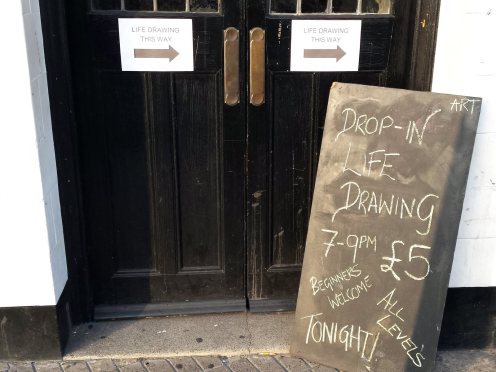 LIFE DRAWING
THIS WAY
LIFE DRAWING
THIS WAY
ART
DROP-IN
LIFE
DRAWING
7-9PM £5
BEGINNERS
WELCOME
ALL
LEVEL'S
TONIGHT!